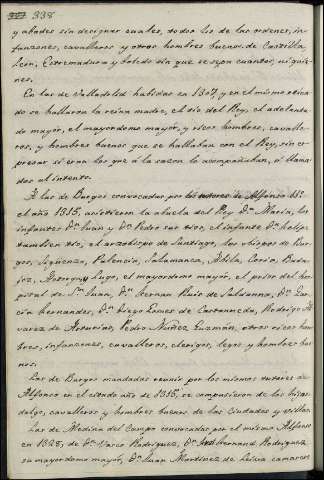 338
y abades sin designar cuales, todos los de las ordenes, in-
fanzones, cavalleros y otros hombres buenos de Castilla,
Leon, Estremadura y toledo sin que se sepa cuantos, ni quie-
nes.
En las de Valladolid habidas en 1307, y en el mismo etica-
do se hallaron la reina madre, el tio del Rey, el adelanta-
do mayor, el mayordomo mayor, y ricos hombres, cavalle-
ros, y hombres buenos que se hallaban con el Rey, sin es-
presar si eran los que á la sazon le acompañaban, ó llama-
dos al intento.
A las de Burgos convocadas por los tutores de Alfonso
el año 1315, asistieron la abuela del Rey Dª Maria, los
infantes Dn Juan y Dn Pedro sus tios, el infante Dn Felipe
tambien tio, el arzobispo de Santiago, los obispos de Bur-
gos, Sigüenza, Palencia, Salamanca, Abila, Coria, Bada-
joz, Astorga y Lugo, el mayordomo mayor, el prior del hos-
pital de Sn Juan, Dn Fernan Ruiz de Saldanna, Dn Gar-
cia hernandes, Dn Diego Gomes de Castanneda, Rodrigo Al-
varez de Asturias, Pedro Nuñez Guzmán, otros ricos hom-
bres, infanzones, cavalleros, clerigos, leyos y hombres bue-
nos.
Las de Burgos mandadas reunir por los mismos tutores de
Alfonso en el citado año de 1315, se compusieron de los hijos-
dalgo, cavalleros y hombres buenos de las Ciudades y villas.
Las de Medina del Campo convocadas por el mismo Alfonso
en 1328, de Dn Vasco Rodriguez, Dn hernand Rodriguez
su mayordomo mayor, Dn Juan Martinez de Leiva camarero